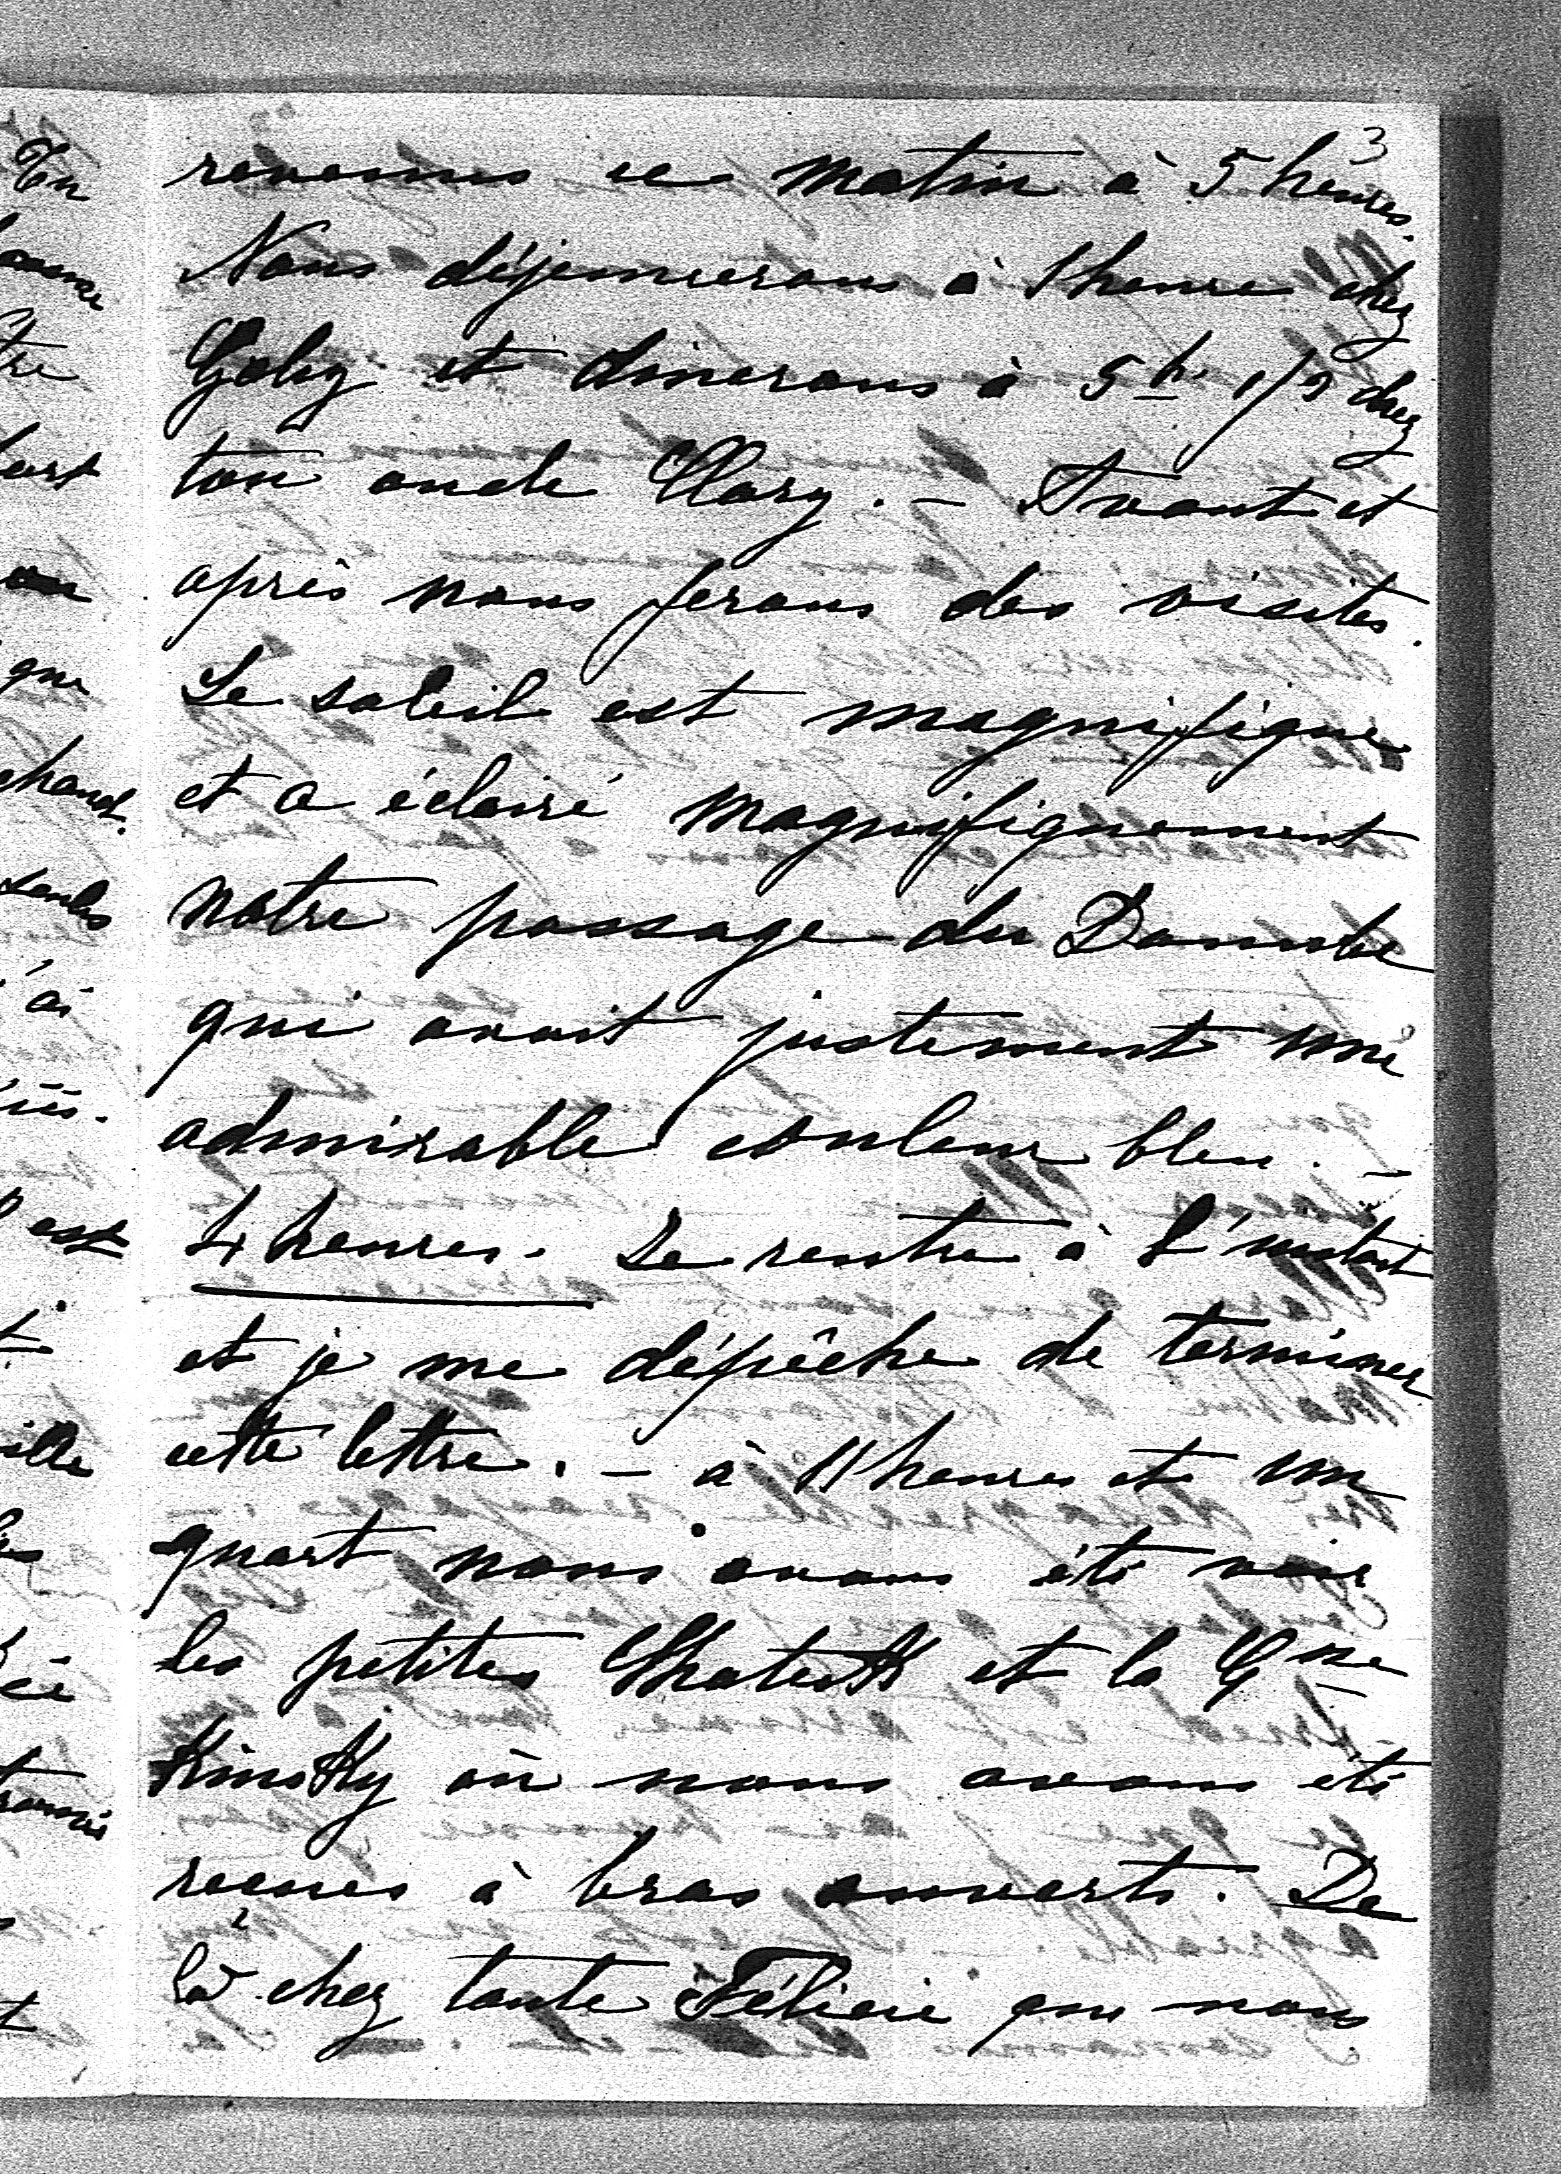 3
revenus ce matin à 5 heures.
Nous déjeunerons à 1 heure chez
Gaby et dinerons à 5 h. 1/2 chez
ton oncle Clary. – Avant et
après nous ferons des visites.
Le soleil est magnifique
et a éclairé magnifiquement
notre passage du Danube
qui avait justement une
admirable couleur bleu. –
4 heures. Je rentre à l'instant
et je me dépêche de terminer
cette lettre. – à 11 heures et un
quart nous avons été voir
les petites et la
Kinsky où nous avons été
reçues à bras ouverts. De
là chez tante Félicie que nous